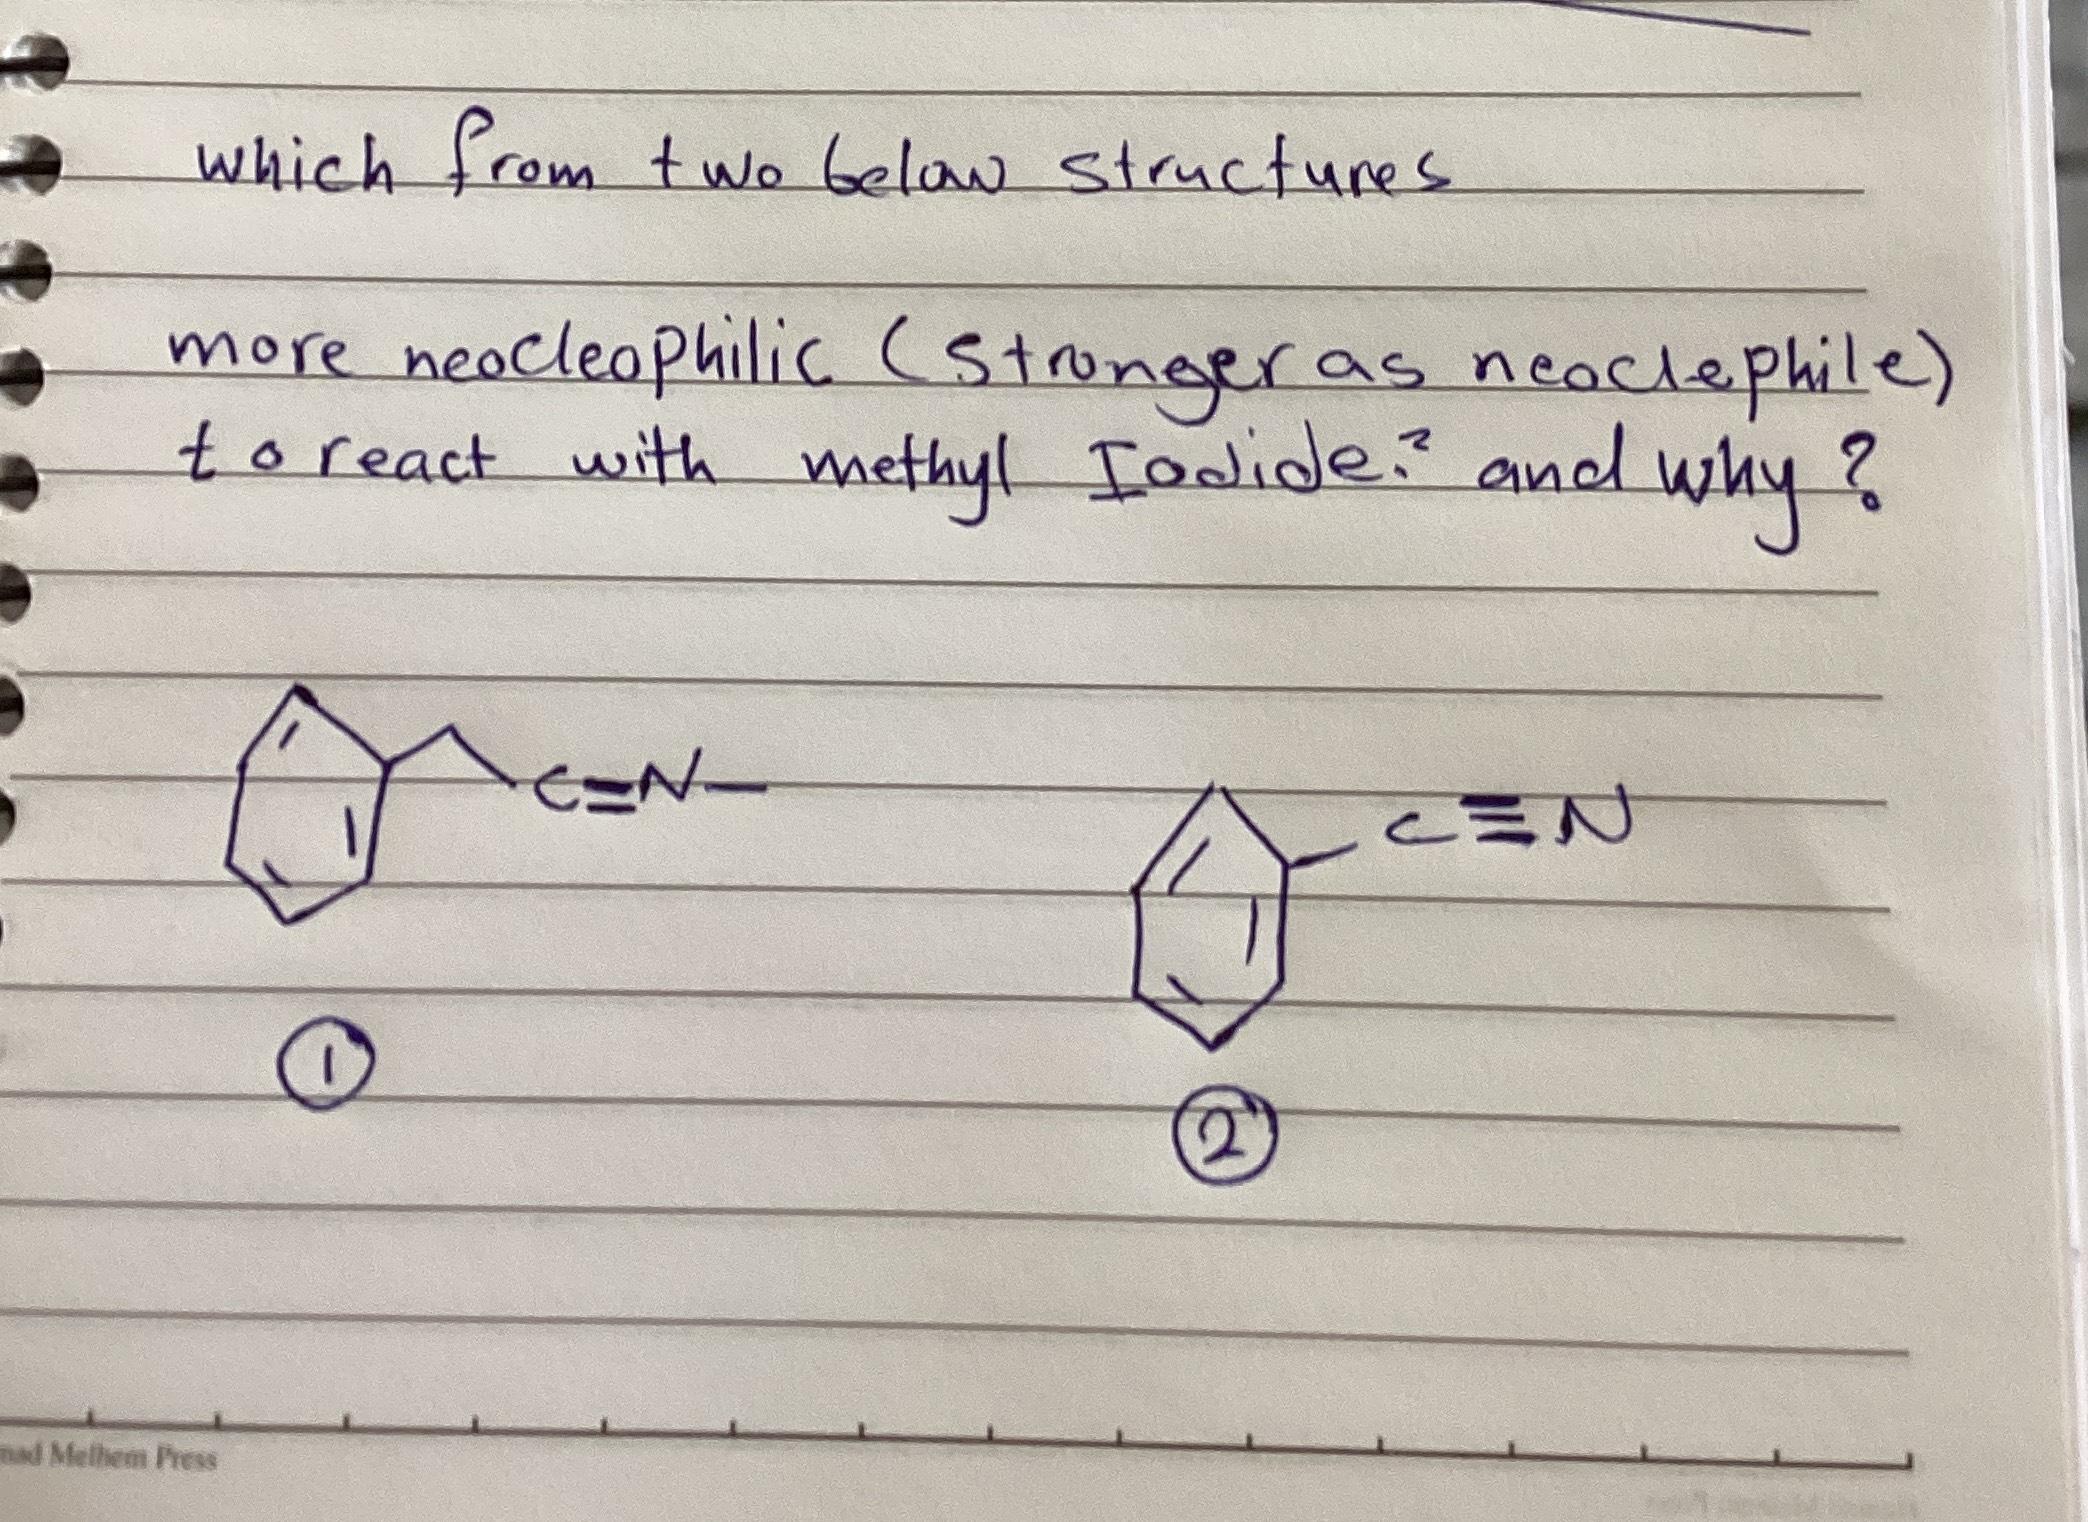 which from two below structures
more neocleophilic (stronger as neoclephile)
to react with methyl Iodide? and why?
C=N–
C≡N
1
2
mad Melhem Press